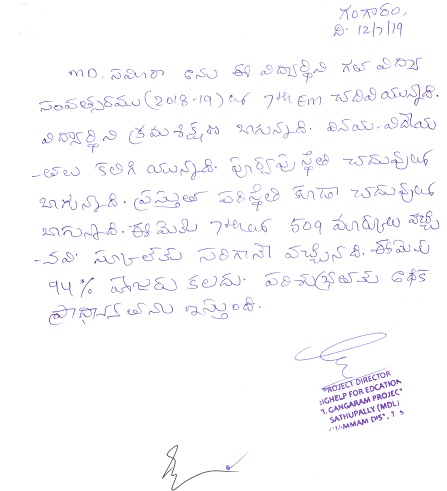 గంగారం,
ది. 12/7/19
MD. సమీరా అను ఈ విద్యార్థిని గత విద్యా
సంవత్సరము (2018-19) లో 7th Em చదివియున్నది.
విద్యార్థిని క్రమశిక్షణ బాగున్నది. వినయ-విధేయ
-తలు కలిగి యున్నది. పూర్వపుస్థితి చదువులో
బాగున్నది. ప్రస్తుత పరిస్థితి కూడా చదువులో
బాగున్నది. ఈమెకు 7thలో 509 మార్కులు వచ్చి
-నవి. స్కూల్‌కు సరిగానే వచ్చేనది. ఈమెకు
94% హాజరు కలదు. పరిశుభ్రతకు అధిక
ప్రాధాన్యతను ఇస్తుంది.
PROJECT DIRECTOR
GANGARAM PROJEC
SATHUPALLY (MDL)